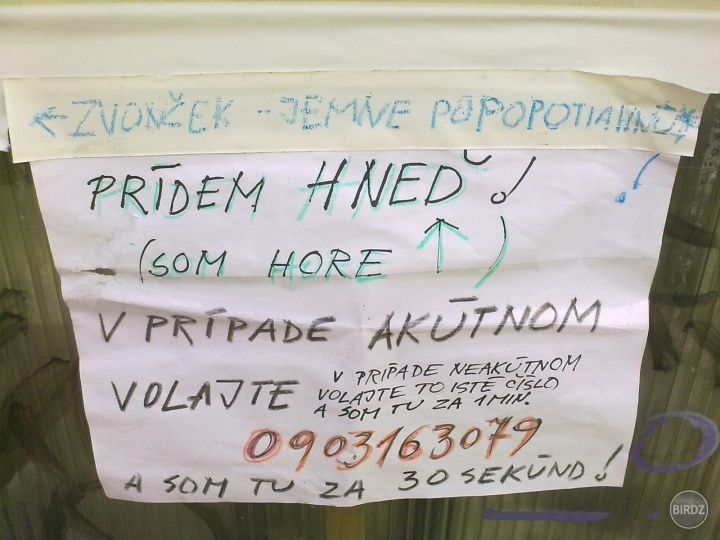 ← ZVONČEK - JEMNE POPOPOTIAHNUŤ
PRÍDEM HNEĎ!
(SOM HORE ↑)
V PRÍPADE AKÚTNOM
VOLAJTE
V PRÍPADE NEAKÚTNOM
VOLAJTE TO ISTÉ ČÍSLO
A SOM TU ZA 1 MIN.
0903163079
A SOM TU ZA 30 SEKÚND!
BIRDZ